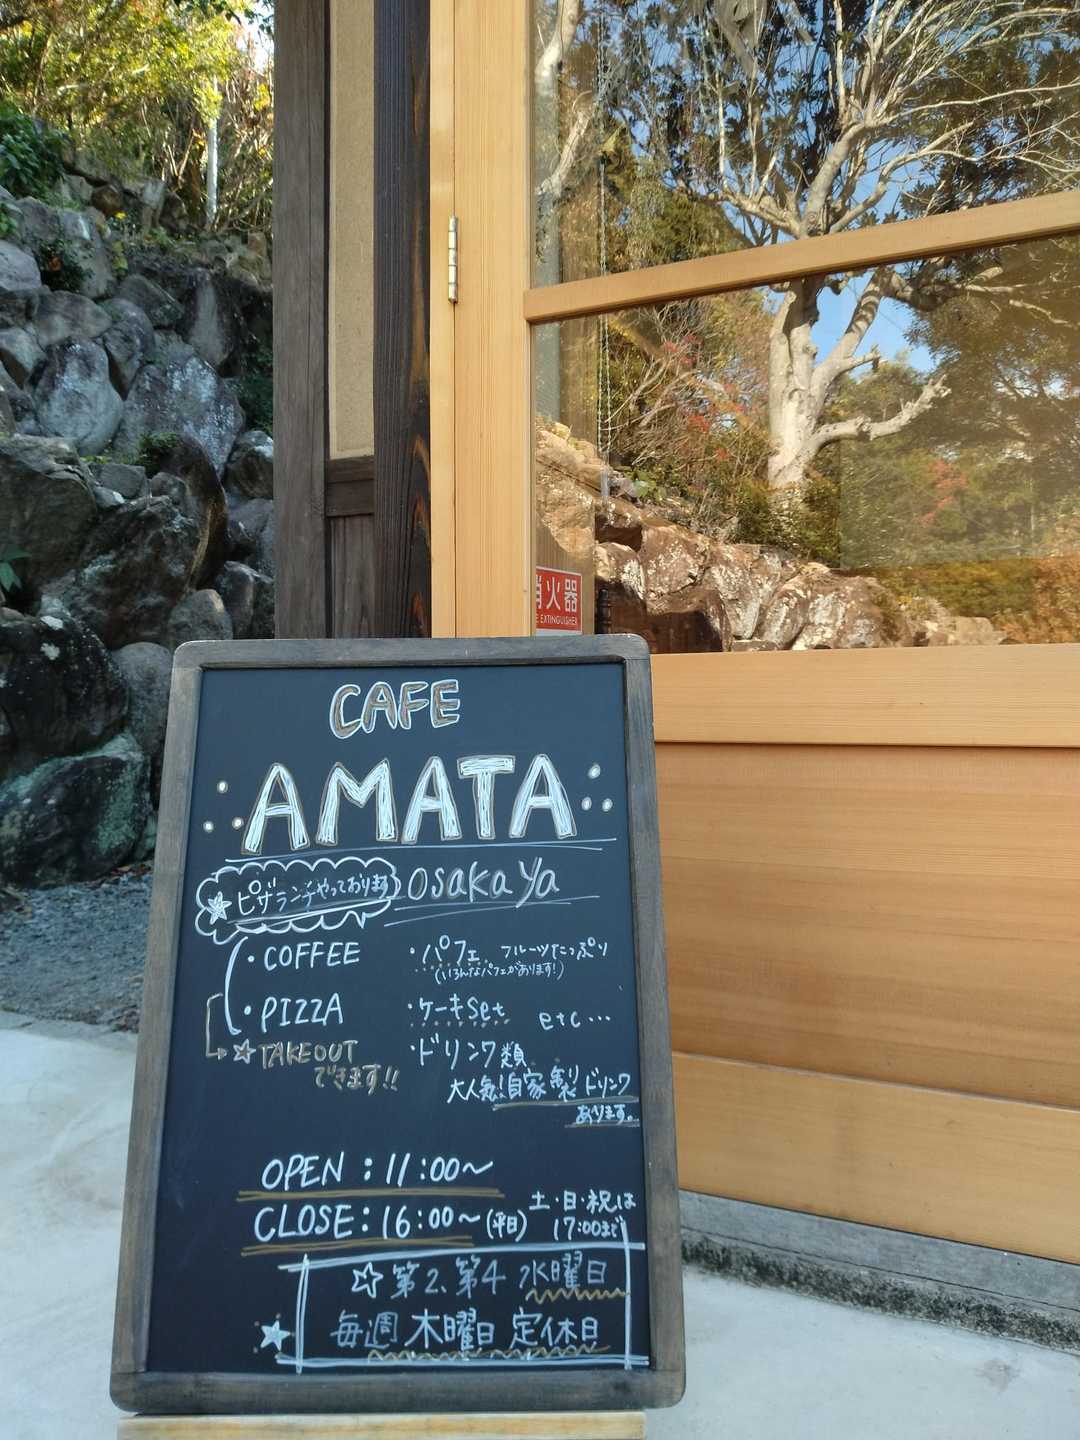 消火器
FIRE EXTINGUISHER
CAFE
AMATA
☆ピザランチやっております
osakaya
・COFFEE
・PIZZA
☆TAKEOUT
できます!!
・パフェ フルーツたっぷり
(いろんなパフェがあります!)
・ケーキset etc…
・ドリンク類
大人気!自家製ドリンク
あります。
OPEN:11:00〜
CLOSE:16:00〜(平日)
土・日・祝は
17:00まで
☆第2、第4 水曜日
☆毎週 木曜日 定休日